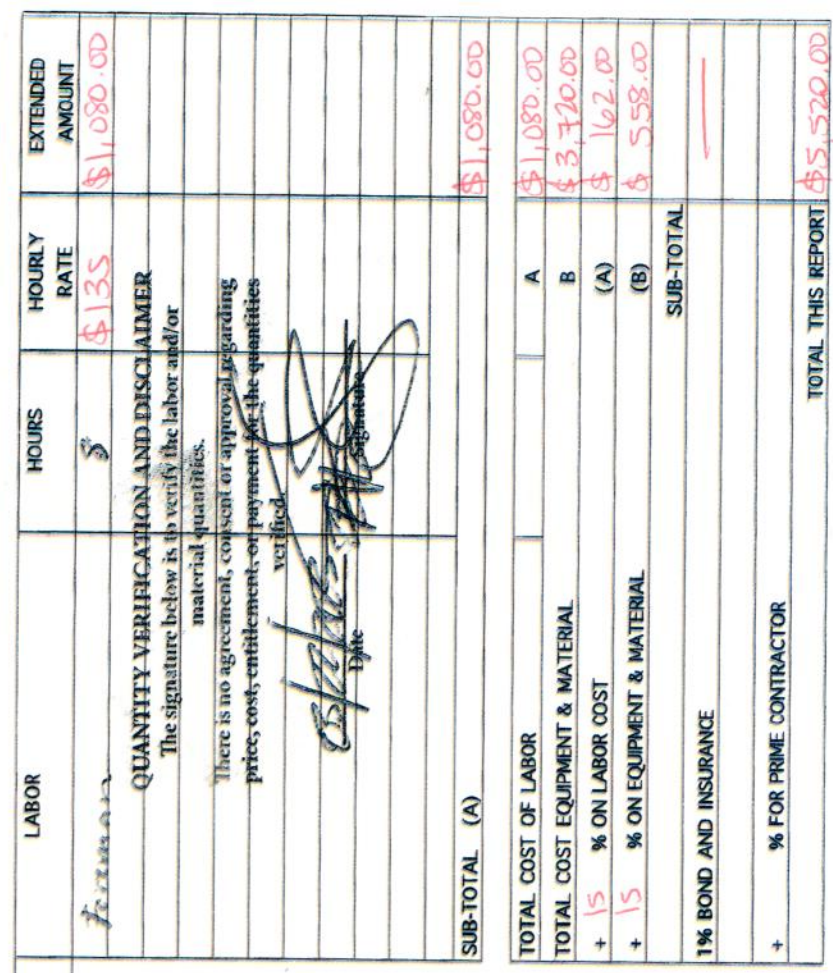 LABOR HOURS HOURLY RATE EXTENDED AMOUNT
Foreman 8 $135 $1,080.00
QUANTITY VERIFICATION AND DISCLAIMER
The signature below is to verify the labor and/or
material quantities.
There is no agreement, consent or approval regarding
price, cost, entitlement, or payment for the quantities
verified.
Date Signature
SUB-TOTAL (A) $1,080.00
TOTAL COST OF LABOR A $1,080.00
TOTAL COST EQUIPMENT & MATERIAL B $3,720.00
+ 15 % ON LABOR COST (A) $ 162.00
+ 15 % ON EQUIPMENT & MATERIAL (B) $ 558.00
SUB-TOTAL
1% BOND AND INSURANCE —
+ % FOR PRIME CONTRACTOR
TOTAL THIS REPORT $5,520.00